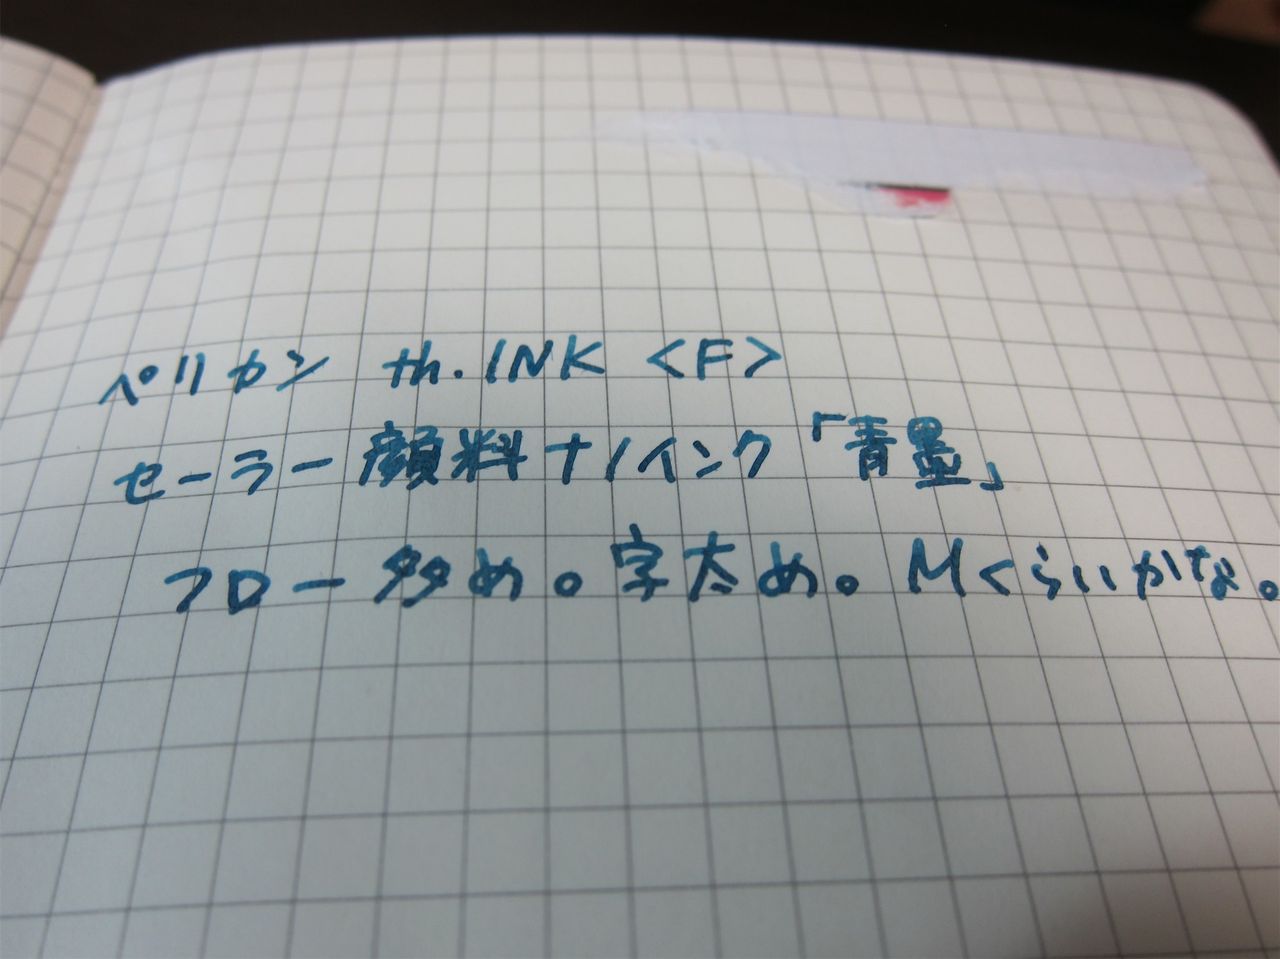 ペリカン th.INK <F>
セーラー顔料ナノインク「青墨」
フロー多め。字太め。Mくらいかな。